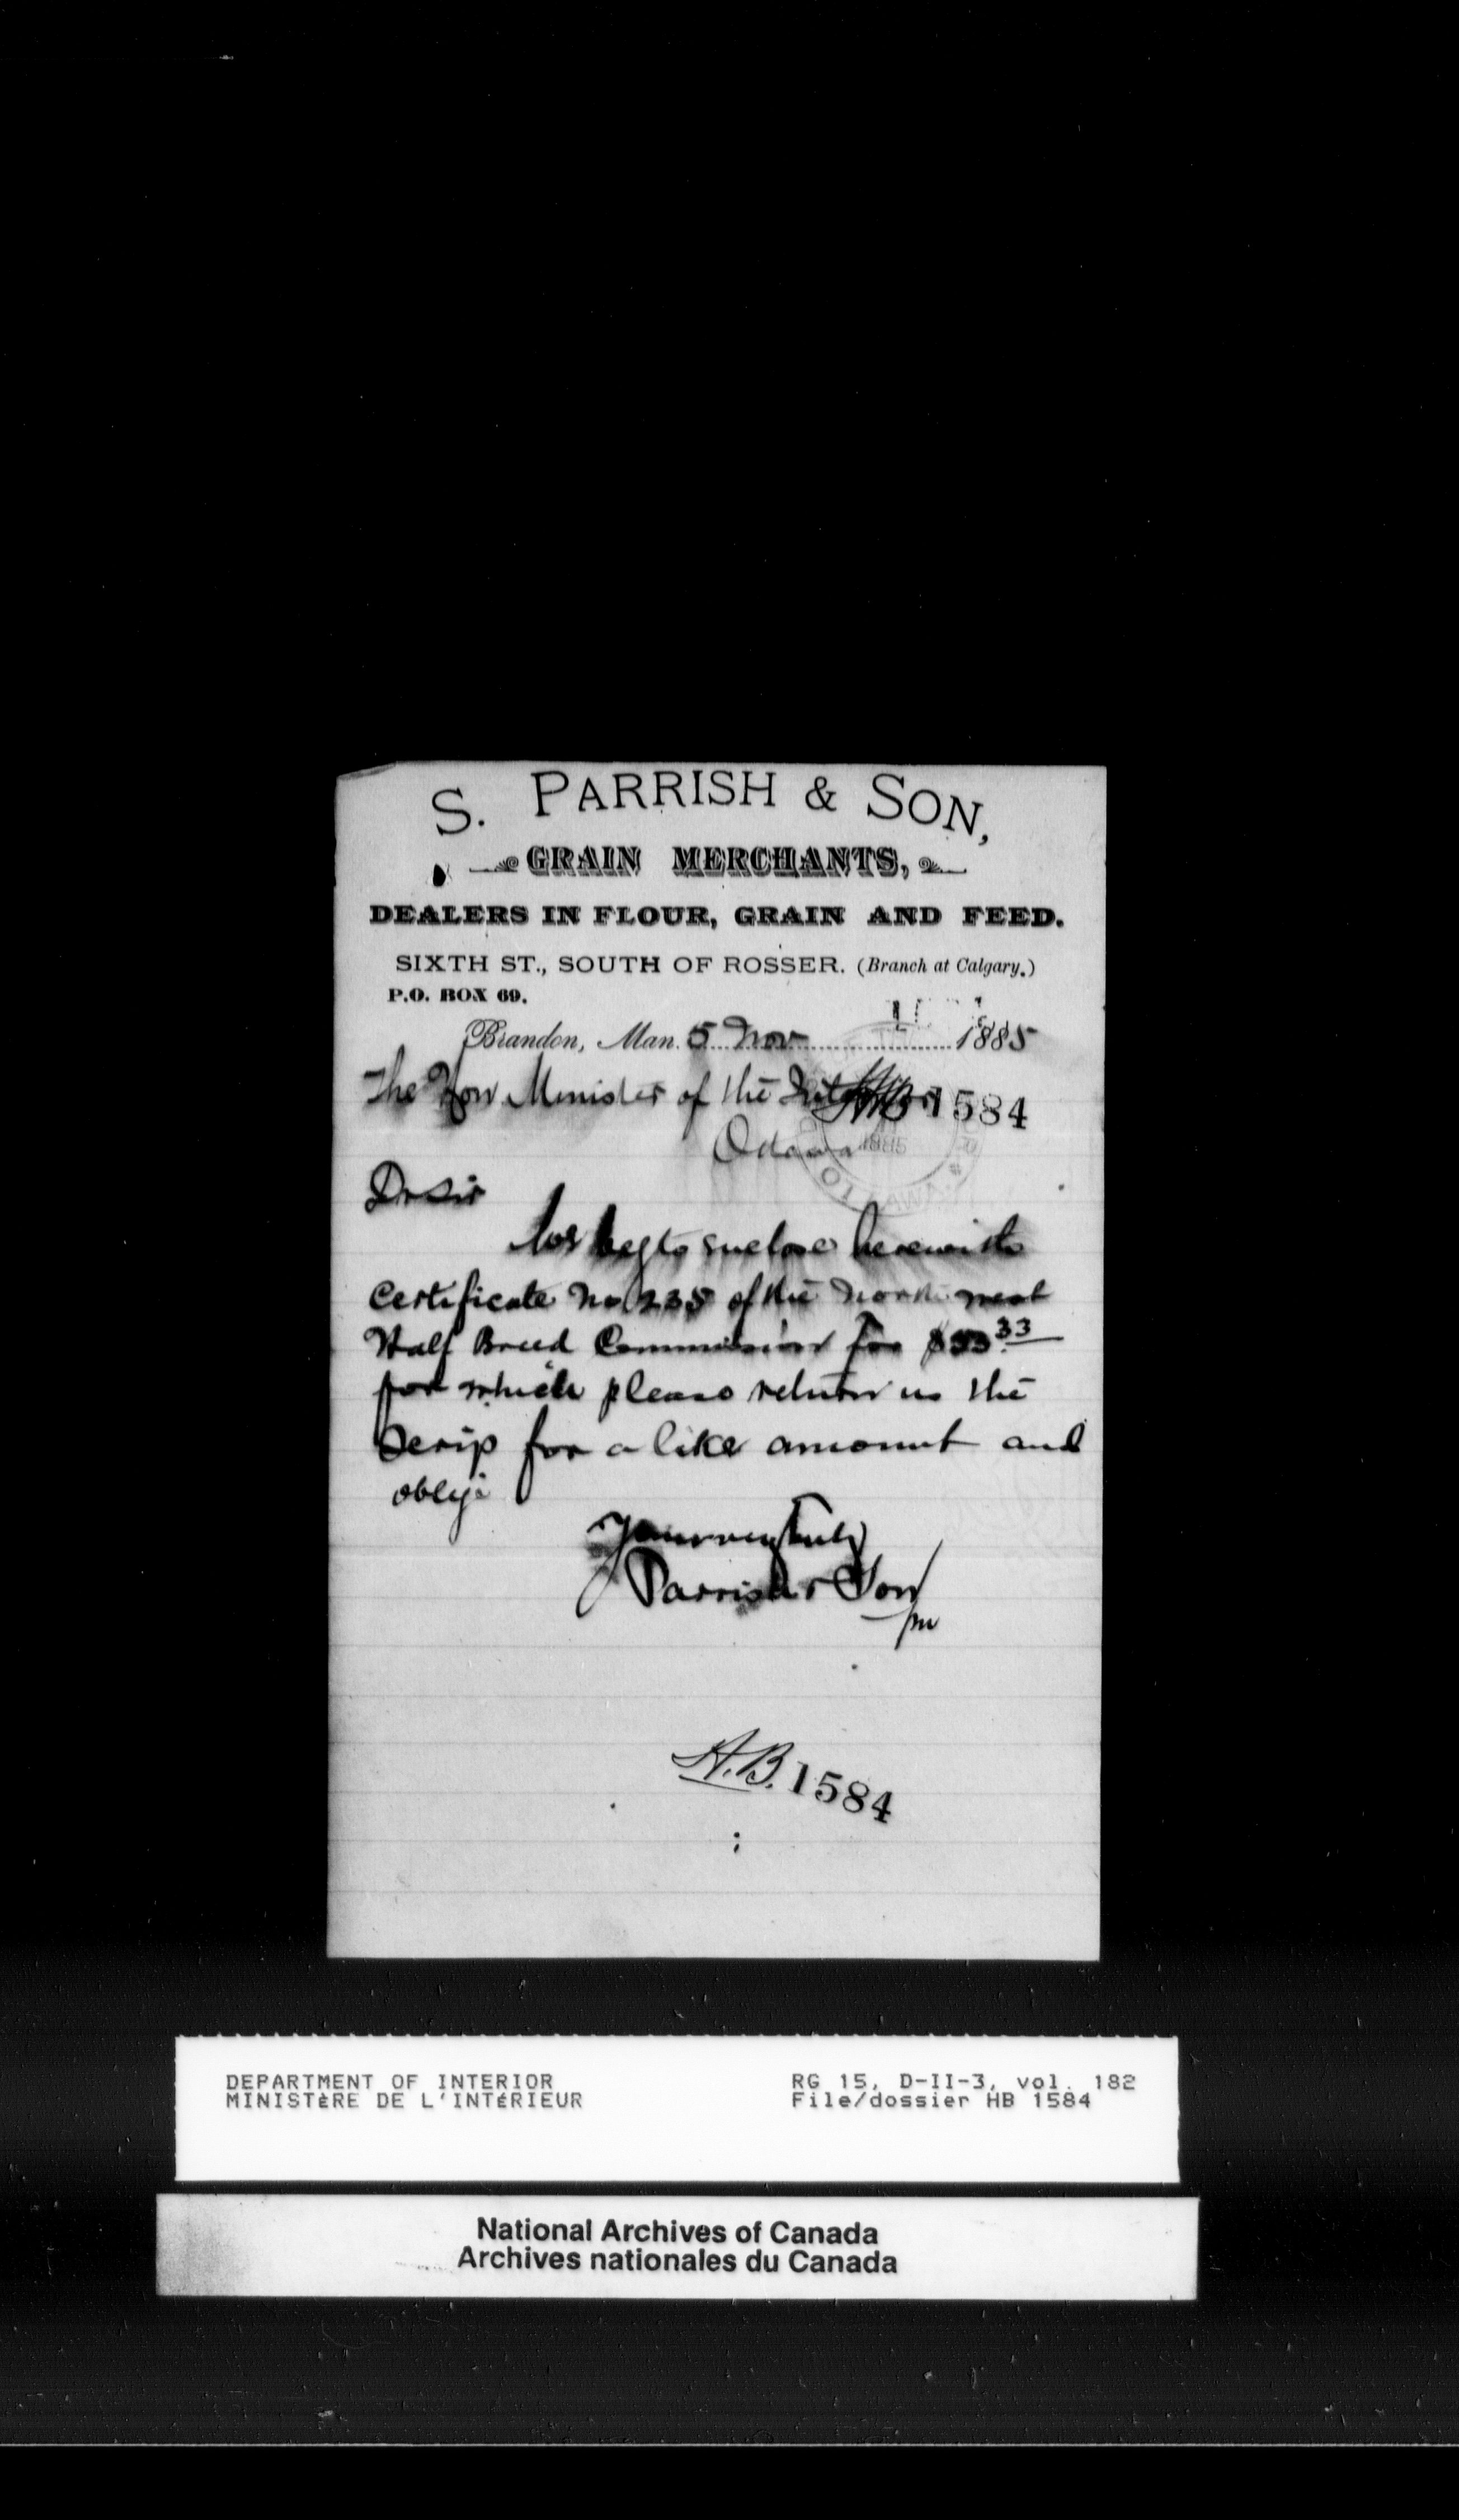 S. PARRISH & SON,
GRAIN MERCHANTS,
DEALERS IN FLOUR, GRAIN AND FEED.
SIXTH ST., SOUTH OF ROSSER. (Branch at Calgary.)
P.O. BOX 69.
Brandon, Man. 5 Nov 1885
The Hon Minister of the Interior
HB 1584
Ottawa
1885
OTTAWA
Dr Sir
We beg to enclose herewith
Certificate No 235 of the North west
Half Breed Commission for $53.33
for which please return us the
Scrip for a like amount and
oblige
Yours very truly
Parrish & Son
H.B. 1584
DEPARTMENT OF INTERIOR
MINISTÈRE DE L'INTÉRIEUR
RG 15, D-II-3, vol. 182
File/dossier HB 1584
National Archives of Canada
Archives nationales du Canada